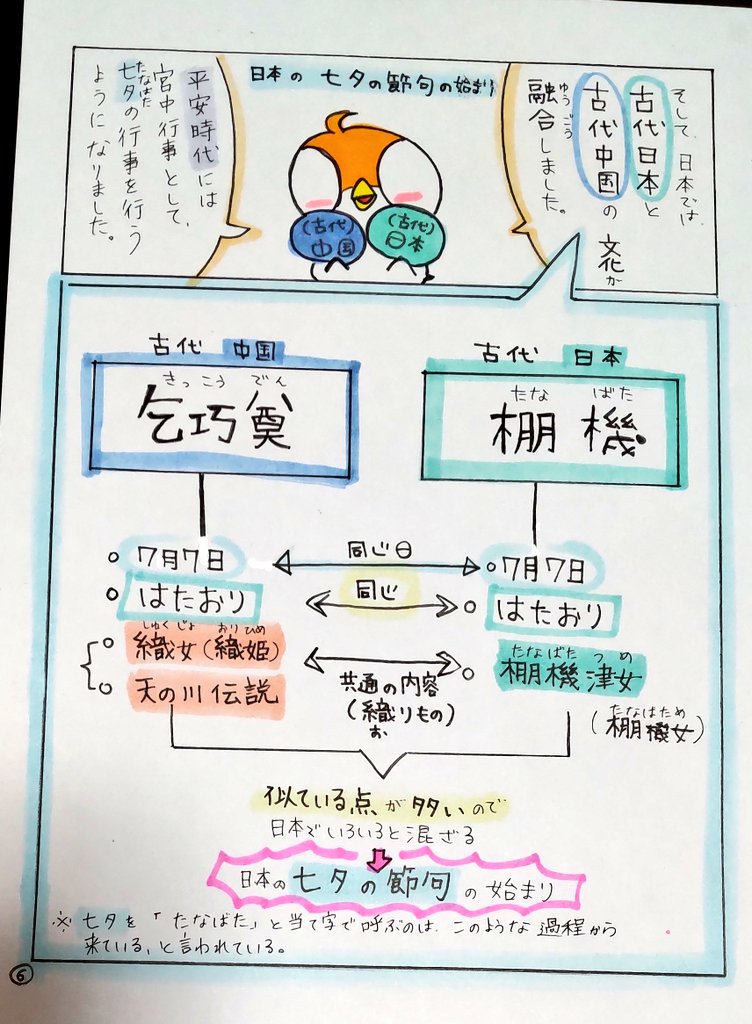 日本の 七夕の節句の始まり
そして、日本では、
古代日本と
古代中国の
文化が
ゆうごう
融合しました。
(古代)
中国
(古代)
日本
平安時代には
宮中行事として、
たなばた
七夕の行事を行う
ようになりました。
古代 中国
きっ こう でん
乞巧奠
古代 日本
たな ばた
棚機
7月7日
同じ日
7月7日
はたおり
同じ
はたおり
しゅくじょ おりひめ
織女(織姫)
天の川伝説
共通の内容
(織りもの)
お
たなばた つ め
棚機津女
たなばため
(棚機女)
似ている点が多いので
日本でいろいろと混ざる
日本の七夕の節句の始まり
※ 七夕を「たなばた」と当て字で呼ぶのは、このような過程から
来ている、と言われている。
6